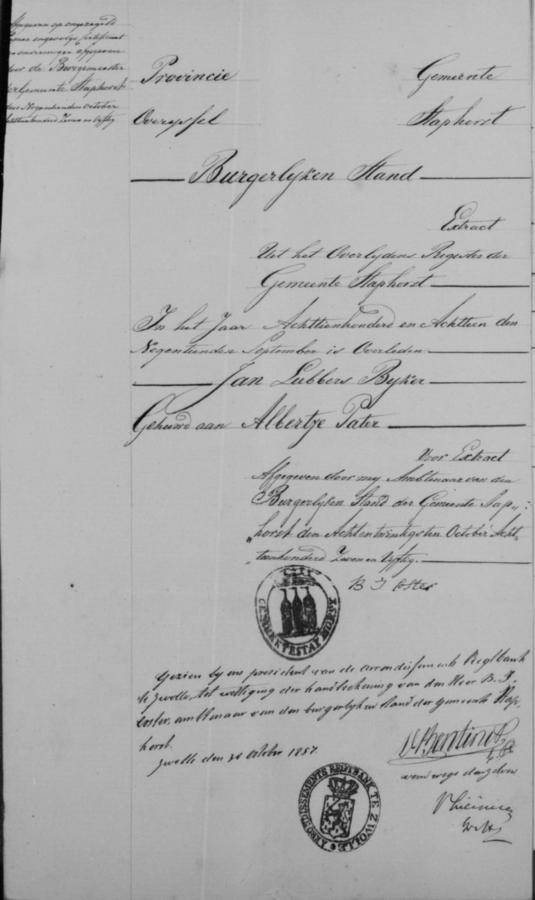 Afgegeven op ongezegeld
door de Burgemeester
der Gemeente Staphorst
den Negenkanden October
Achttienhonderd Zeven en vyftig
Provincie Gemeente
Overyssel Staphorst
Burgerlyken Stand
Extract
Uit het Overlydens Register der
Gemeente Staphorst
In het Jaar Achttienhonderd en Achttien den
Negentienden September is Overleden
Jan Lubbers Byker
Gehuwd aan Albertje Pater
Voor Extract
Afgegeven door my Ambtenaar van den
Burgerlyken Stand der Gemeente Stap„
„horst den Achtentwintigsten October Acht„
„tienhonderd Zeven en vyftig.
B J Oster
GEMEENTE STAPHORST
Gezien by ons president van de arrondissements Regtbank
te Zwolle, tot wettiging der handteekening van den Heer B. J.
Oster, ambtenaar van den burgerlyken stand der gemeente Stap„
horst.
Zwolle den 30 October 1857
ARRONDISSEMENTS REGTBANK TE ZWOLLE